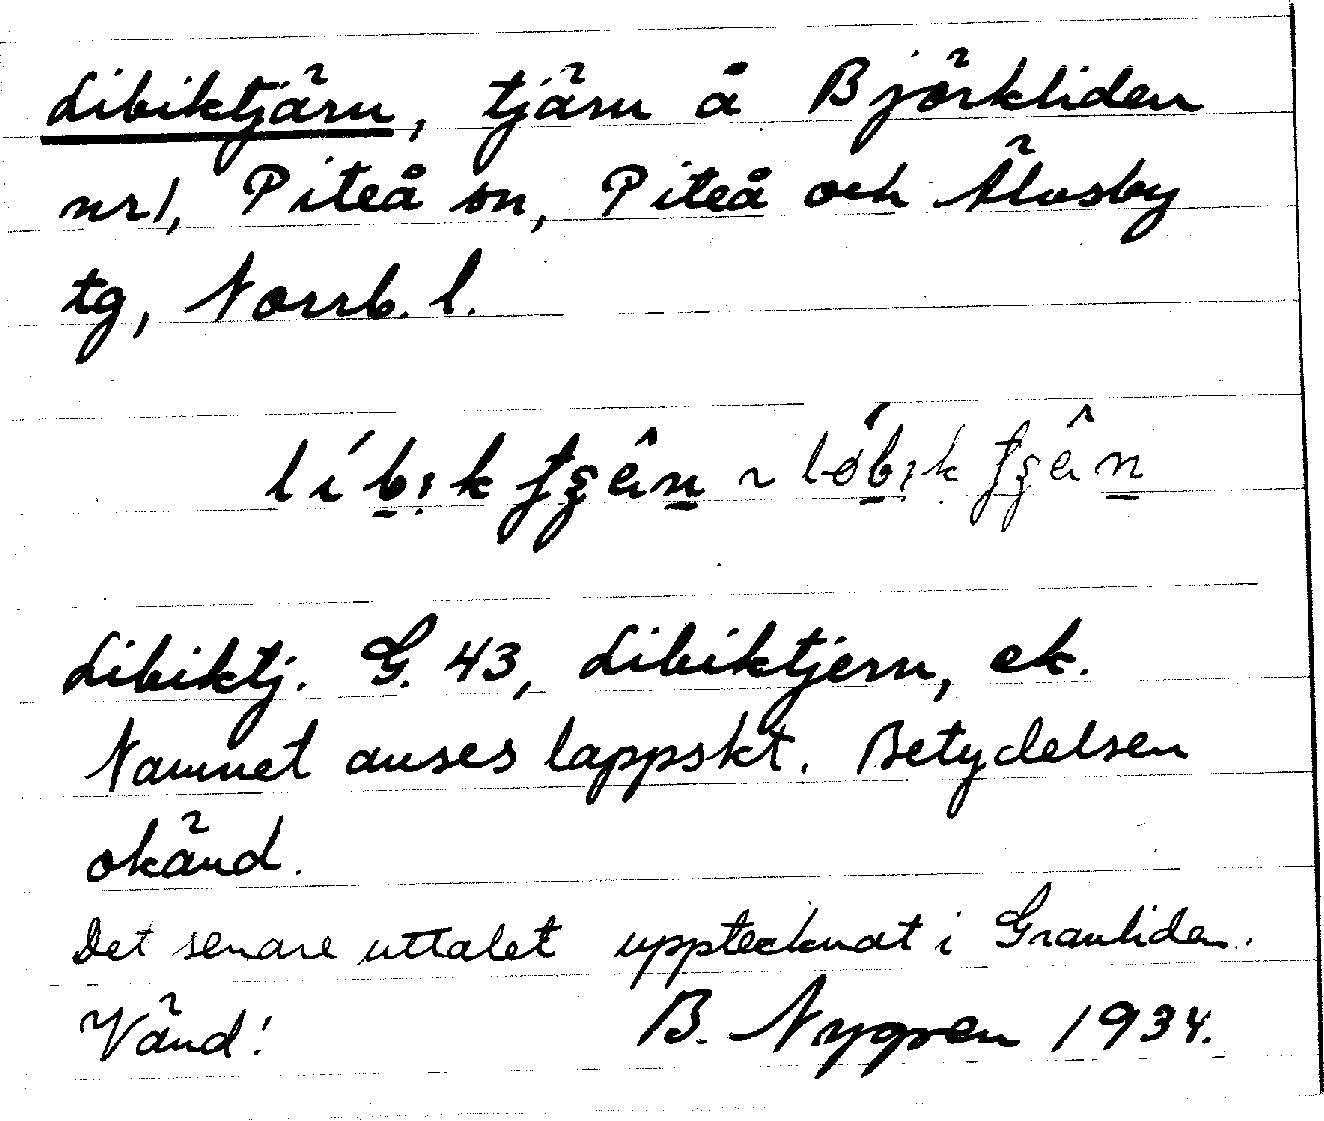 Libiktjärn, tjärn å Björkliden
nr 1, Piteå sn, Piteå och Älvsby
tg, Norrb. l.
líb̲ı̣k ʃʒên̲ ~ lǿb̲ı̣k ʃʒên̲
Libiktj. G. 43, Libiktjern, ek.
Namnet anses lappskt. Betydelsen
okänd.
Det senare uttalet upptecknat i Granliden.
Vänd! B. Nygren 1934.